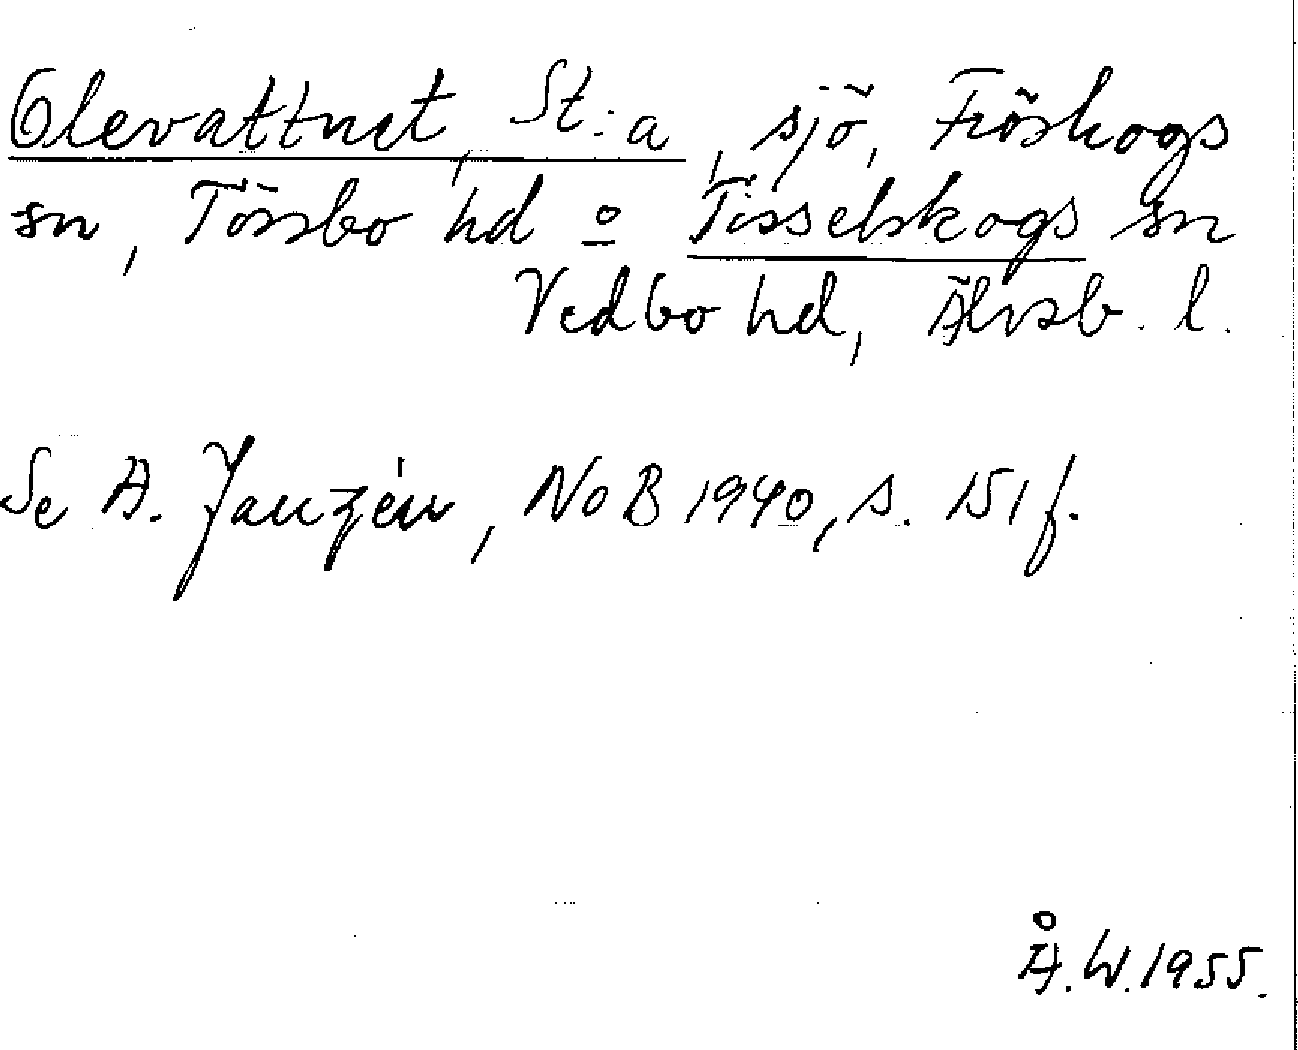 Olevattnet, St:a, sjö, Fröskogs
sn, Tössbo hd o Tisselskogs sn
Vedbo hd, Älvsb. l.
Se A. Janzén, NoB 1940, s. 151 f.
Å.W.1955.